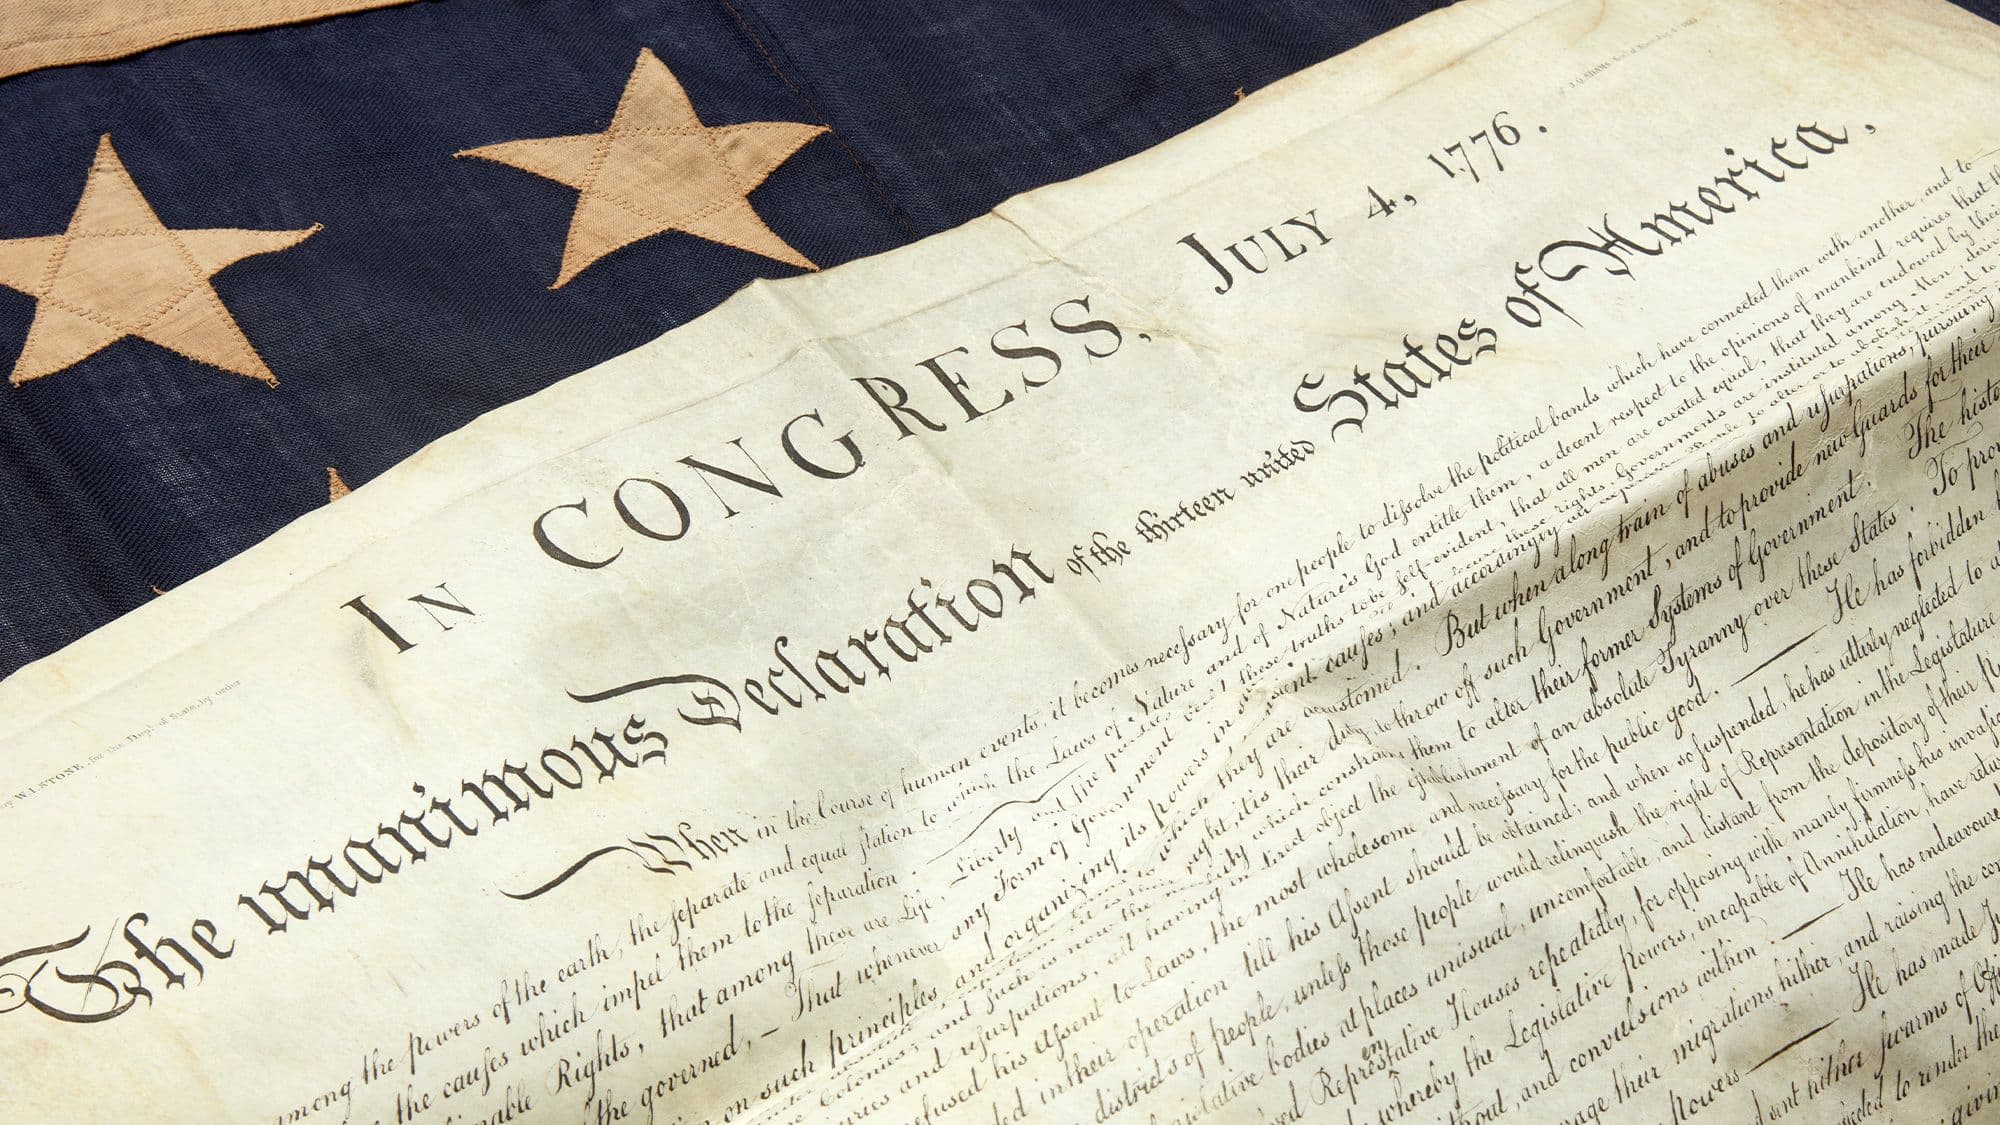 J.Q.ADAMS
IN CONGRESS, JULY 4, 1776.
by W.I.STONE, for the Dept. of State, by order
The unanimous Declaration of the thirteen united States of America,
When in the Course of human events, it becomes necessary for one people to dissolve the political bands which have connected them with another, and to
among the powers of the earth, the separate and equal station to which the Laws of Nature and of Nature's God entitle them, a decent respect to the opinions of mankind requires that th
the causes which impel them to the separation. these truths to be self-evident, that all men are created equal, that they are endowed by their
nable Rights, that among these are Life, Liberty and the these rights, Governments are instituted among Men, deriv
the governed, — That whenever any Form of Government to alter or to abolish it, and to
on such principles, and organizing its powers in
sient causes; and accordingly all
which they are accustomed. But when a long train of abuses and usurpations, pursuing
right, it is their duty, to throw off such Government, and to provide new Guards for their
Colonies; and such is now the necessity which constrains them to alter their former Systems of Government. The histo
uries and usurpations, all having in direct object the establishment of an absolute Tyranny over these States. To prov
refused his Assent to Laws, the most wholesome and necessary for the public good. — He has forbidden
ed in their operation till his Assent should be obtained; and when so suspended, he has utterly neglected to a
districts of people, unless those people would relinquish the right of Representation in the Legislature
gislative bodies at places unusual, uncomfortable, and distant from the depository of their
ved Representative Houses repeatedly, for opposing with manly firmness his invasi
whereby the Legislative Powers, incapable of Annihilation, have retur
thout, and convulsions within. — He has endeavoure
rage their migrations hither, and raising the con
Powers — He has made Ju
sent hither swarms of Offi
to render the